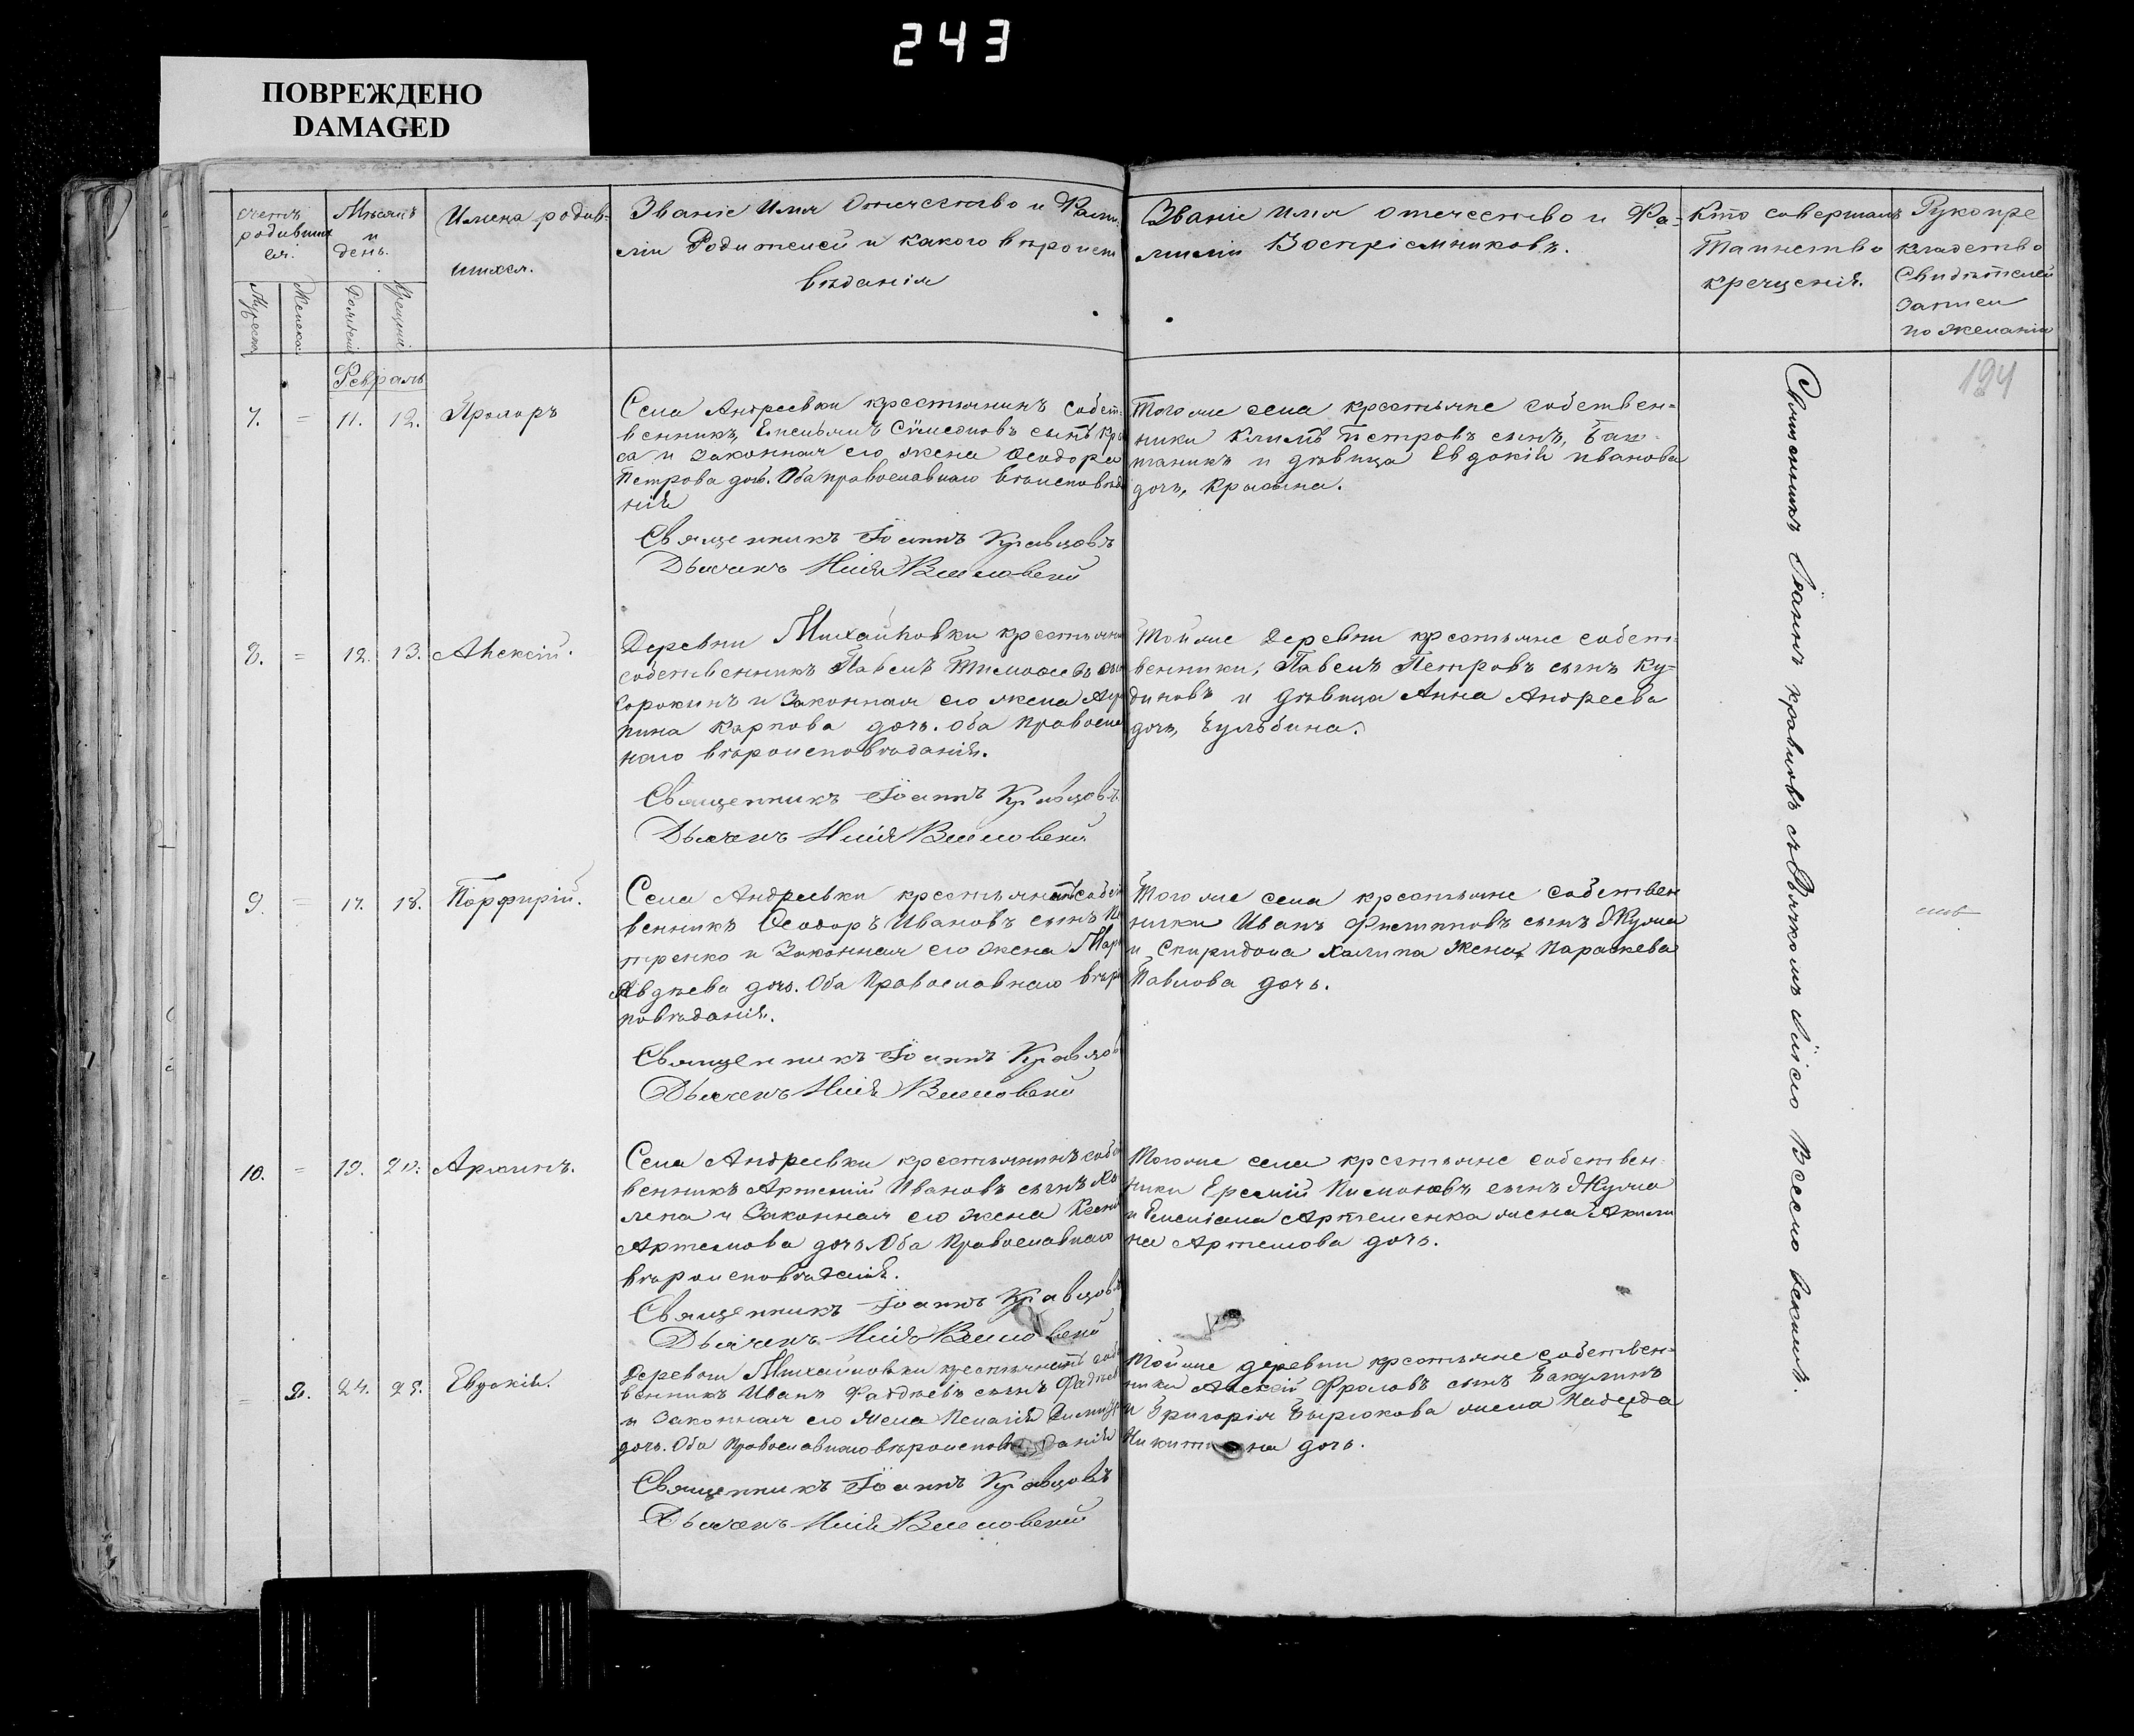 243
ПОВРЕЖДЕНО
DAMAGED
счетъ родившихся.
Мѣсяцъ и день.
Имена родив-
шихся.
Званіе Имя Отчество и Фами
ліи Родителей и какого вѣроисп
вѣданія
Званіе имя отчество и Фа-
миліи Воспріемниковъ.
Кто совершалъ
Таинство
крещенія.
Рукопре
кладство
Свидѣтелей
записи
по желанію
Мужеска
Женска
Рожденія
Крещенія
124
Февраль
7. = 11. 12. Фролоръ
Села Андреевки крестьянинъ собст-
венникъ, Емельянъ Сѵмеоновъ сынъ Кр
са и законная его жена Ѳеодора
Петрова дочь. Оба православнаго вѣроисповѣда
нія
Священникъ Іоаннъ Кравцовъ
Дьячекъ Илія Веселовскій
Того же села крестьяне собствен=
ники Климъ Петровъ сынъ,
и дѣвица Евдокія Иванова
дочь, Крысина.
8. = 12. 13. Алексій.
Деревни Михайловки крестьянин
собственникъ Павелъ Тимоѳеевъ сын
Сорокинъ и Законная его жена Агр
пина Карпова дочь. Оба Православ
наго вѣроисповѣданія.
Священникъ Іоаннъ Кравцовъ
Дьячекъ Илія Веселовскій
Той же Деревни крестьяне собст-
венники; Павелъ Петровъ сынъ Ку-
диновъ и дѣвица Анна Андреева
дочь, Бульбина.
9. = 17. 18. Порфирій.
Села Андреевки крестьянинъ собст
венникъ Ѳеодоръ Ивановъ сынъ Пе
тренко и Законная его жена Мар
Авдѣева дочь. Оба Православнаго вѣро
повѣданія.
Священникъ Іоаннъ Кравцов
Дьячекъ Илія Веселовскій
Того же села крестьяне собствен
ники Иванъ Филипповъ сынъ Жулма
и Спиридона Халипа Жена Параскева
Павлова дочь.
10. = 19. 20. Архипъ.
Села Андреевки крестьянинъ собст
венникъ Артемій Ивановъ сынъ Ха
липа и Законная его жена Ксенія
Артемова дочь. Оба Православнаго
вѣроисповѣданія.
Священникъ Іоаннъ Кравцовъ
Дьячекъ Илія Веселовскій
Того же села крестьяне собствен-
ники Еремій сынъ Жулма
и Емеліана Артеменка жена Акили
на Артемова дочь.
= 2. 24. 25. Евдокія.
Деревни Михайловки крестьянинъ собс
венникъ Иванъ Фаддѣевъ сынъ Фаддѣев
и Законная его Жена Пелагія
дочь. Оба Православнаго вѣроисповѣданія
Священникъ Іоаннъ Кравцовъ
Дьячекъ Илія Веселовскій
Той же деревни крестьяне собствен-
ники Алексій Фроловъ сынъ Бакулинъ
и Григорія Бырюкова жена Надежда
Никитина дочь.
Священникъ Іоаннъ Кравцовъ съ Дьячкомъ Иліею Веселовскимъ.